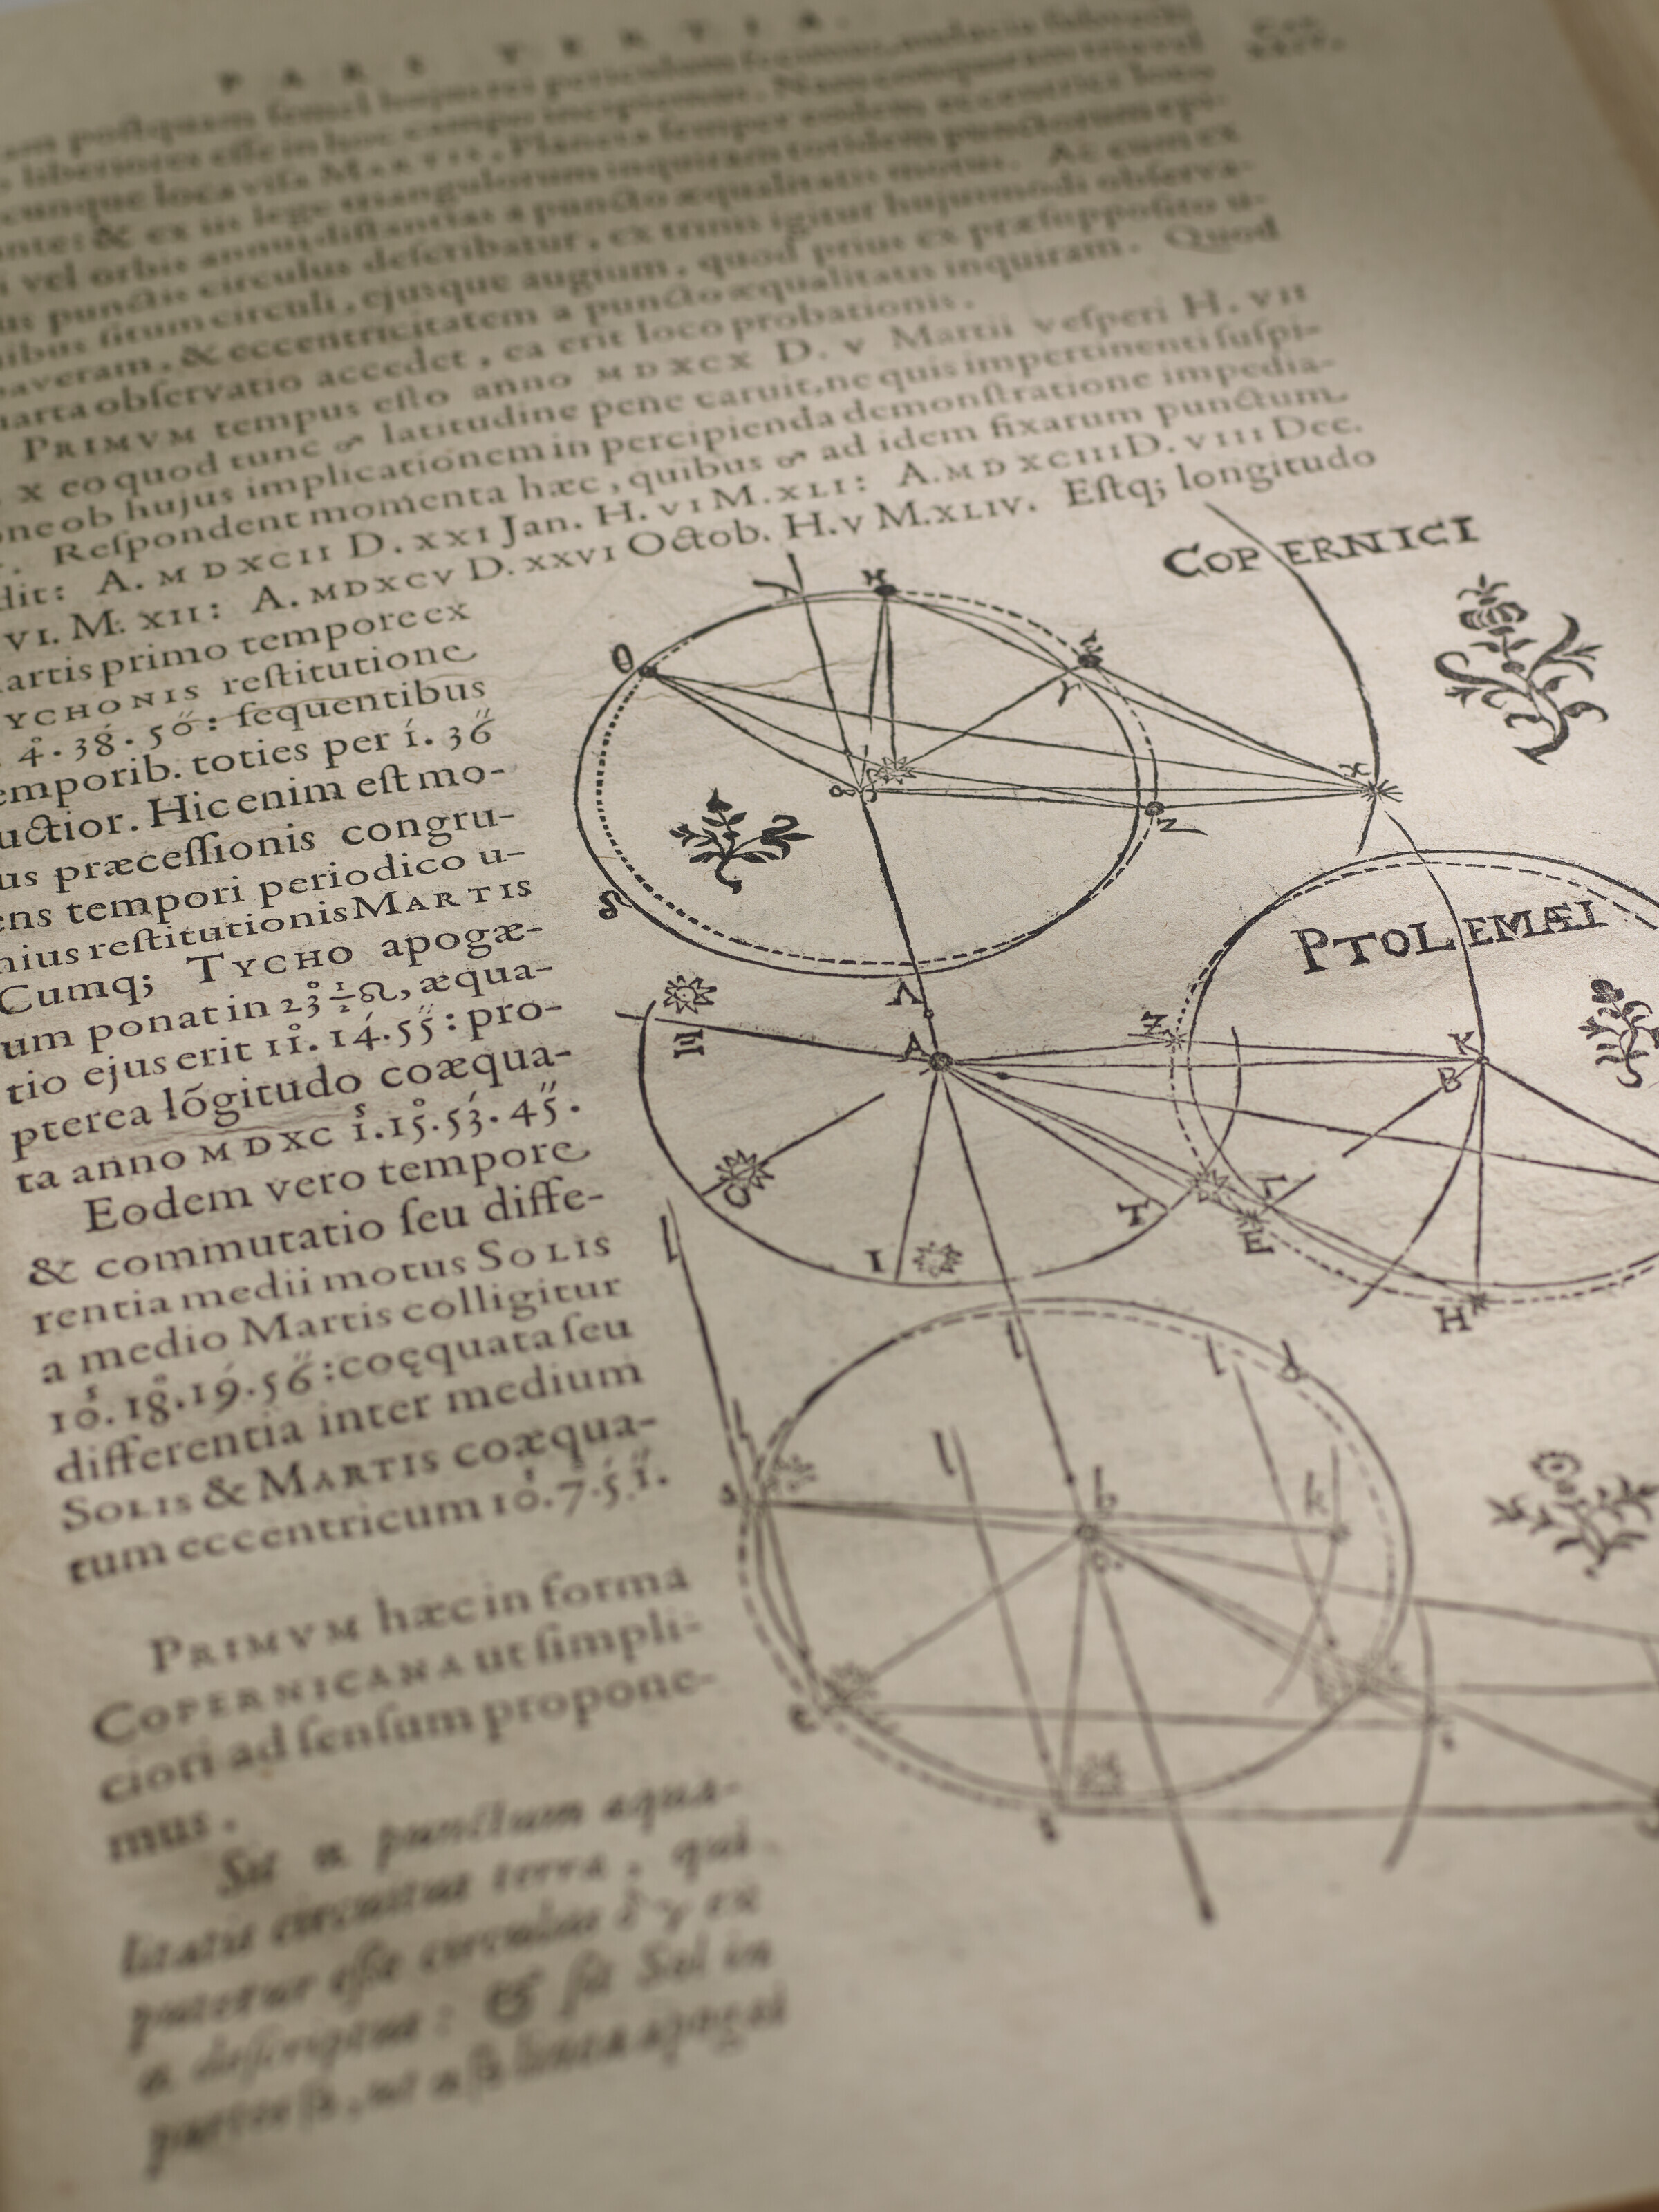 PARS TERTIA.
postquam semel hujus rei periculum fecimus, audacia subvecti
liberiores esse in hoc campo incipiemus. Nam conquiram tria vel
cunque loca visa MARTIS, Planeta semper eodem eccentrici loco
ante: & ex iis lege triangulorum inquiram totidem punctorum epi-
vel orbis annui distantias a puncto æqualitatis motus. Ac cum ex
punctis circulus describatur, ex trinis igitur hujusmodi observa-
ibus situm circuli, ejusque augium, quod prius ex præsupposito u-
averam, & eccentricitatem a puncto æqualitatis inquiram. Quod
arta observatio accedet, ea erit loco probationis.
PRIMVM tempus esto anno MDXCX D. V Martii vesperi H. VII
X eo quod tunc ♂ latitudine pene caruit, ne quis impertinenti suspi-
one ob hujus implicationem in percipienda demonstratione impedia-
. Respondent momenta hæc, quibus ♂ ad idem fixarum punctum
dit: A. MDXCII D. XXI Jan. H. VI M. XLI: A. MDXCIII D. VIII Dec.
VI. M. XII: A. MDXCV D. XXVI Octob. H. V M. XLIV. Estq; longitudo
artis primo tempore ex
YCHONIS restitutione
4°. 38′. 50″: sequentibus
emporib. toties per 1′. 36″
uctior. Hic enim est mo-
us præcessionis congru-
ens tempori periodico u-
nius restitutionis MARTIS
Cumq; TYCHO apogæ-
um ponat in 23°½♌, æqua-
tio ejus erit 11°. 14′. 55″: pro-
pterea lõgitudo coæqua-
ta anno MDXC 1ˢ. 15°. 53′. 45″.
Eodem vero tempore
& commutatio seu diffe-
rentia medii motus SOLIS
a medio Martis colligitur
10ˢ. 18°. 19′. 56″: coęquata seu
differentia inter medium
SOLIS & MARTIS coæqua-
tum eccentricum 10ˢ. 7°. 5′. 1″.
PRIMVM hæc in forma
COPERNICANA ut simpli-
ciori ad sensum propone-
mus.
Sit α punctum æqua-
litatis circuitus terræ, qui
putetur esse circulus δγ ex
α descriptus: & sit Sol in
COPERNICI
θ
η
ε
γ
κ
α
β
ζ
δ
Λ
PTOLEMÆI
Ξ
A
Z
K
B
O
I
T
Γ
E
H
l
l
l
d
l
b
k